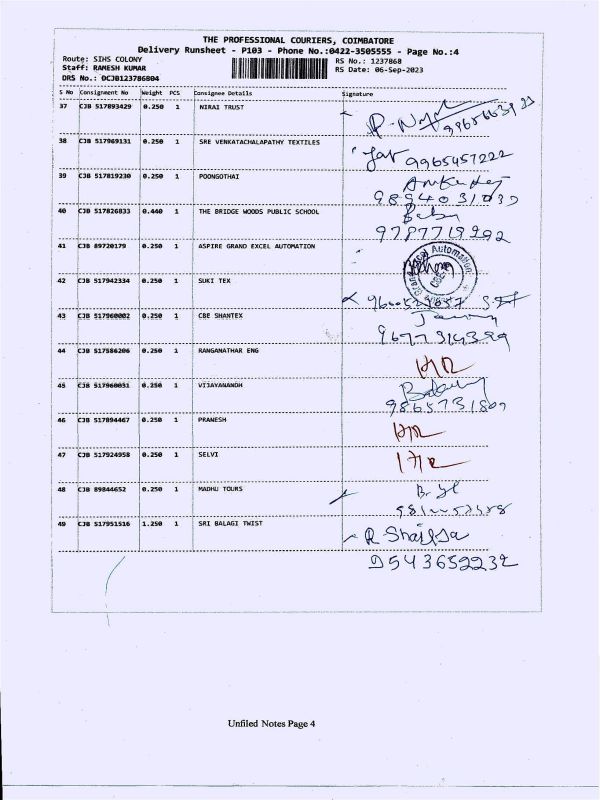 THE PROFESSIONAL COURIERS, COIMBATORE
Delivery Runsheet - P103 - Phone No.:0422-3505555 - Page No.:4
Route: SIHS COLONY RS No.: 1237868
Staff: RAMESH KUMAR RS Date: 06-Sep-2023
DRS No.: OCJB123786804
S No Consignment No Weight PCS Consignee Details Signature
37 CJB 517893429 0.250 1 NIRAI TRUST
38 CJB 517969131 0.250 1 SRE VENKATACHALAPATHY TEXTILES
9965457222
39 CJB 517819230 0.250 1 POONGOTHAI
9894031039
40 CJB 517826833 0.440 1 THE BRIDGE WOODS PUBLIC SCHOOL
Babu
9787719292
41 CJB 89720179 0.250 1 ASPIRE GRAND EXCEL AUTOMATION
Automation
42 CJB 517942334 0.250 1 SUKI TEX
43 CJB 517960002 0.250 1 CBE SHANTEX
9677314399
44 CJB 517586206 0.250 1 RANGANATHAR ENG
45 CJB 517960031 0.250 1 VIJAYANANDH
9865731809
46 CJB 517894467 0.250 1 PRANESH
47 CJB 517924958 0.250 1 SELVI
48 CJB 89844652 0.250 1 MADHU TOURS
49 CJB 517951516 1.250 1 SRI BALAGI TWIST
Unfiled Notes Page 4